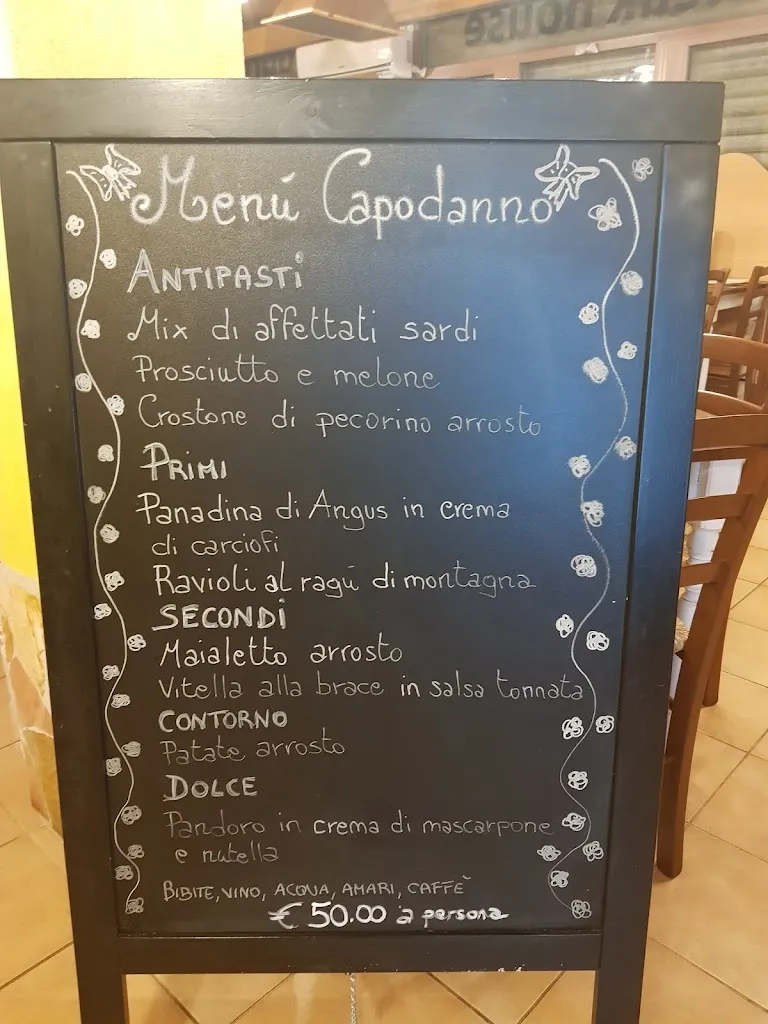 Menú Capodanno
ANTIPASTI
Mix di affettati sardi
Prosciutto e melone
Crostone di pecorino arrosto
PRIMI
Panadina di Angus in crema
di carciofi
Ravioli al ragú di montagna
SECONDI
Maialetto arrosto
Vitella alla brace in salsa tonnata
CONTORNO
Patate arrosto
DOLCE
Pandoro in crema di mascarpone
e nutella
BIBITE, VINO, ACQUA, AMARI, CAFFÈ
€ 50.00 a persona